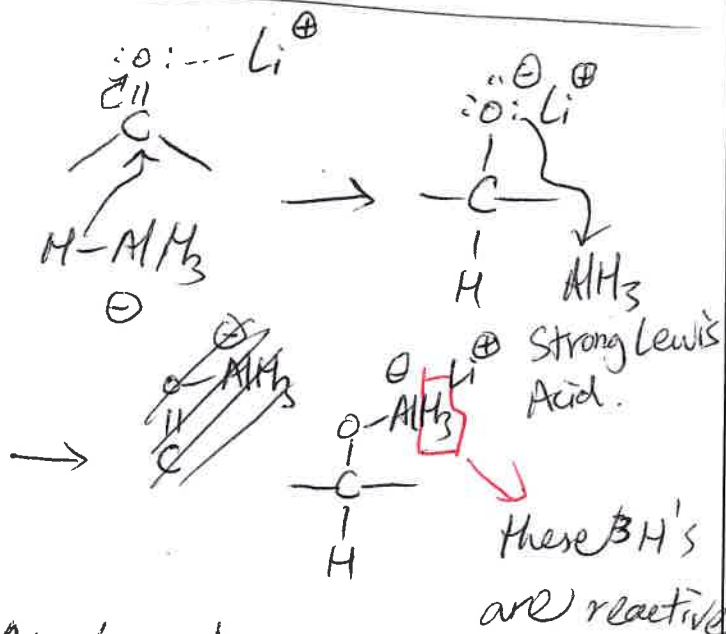 :O: --- Li ⊕
C
H–AlH₃
⊖
⊖
:O: Li ⊕
C
H
AlH₃
Strong Lewis
Acid.
⊖
O–AlH₃
C
⊖ Li ⊕
O–AlH₃
C
H
these 3 H's
are reactive